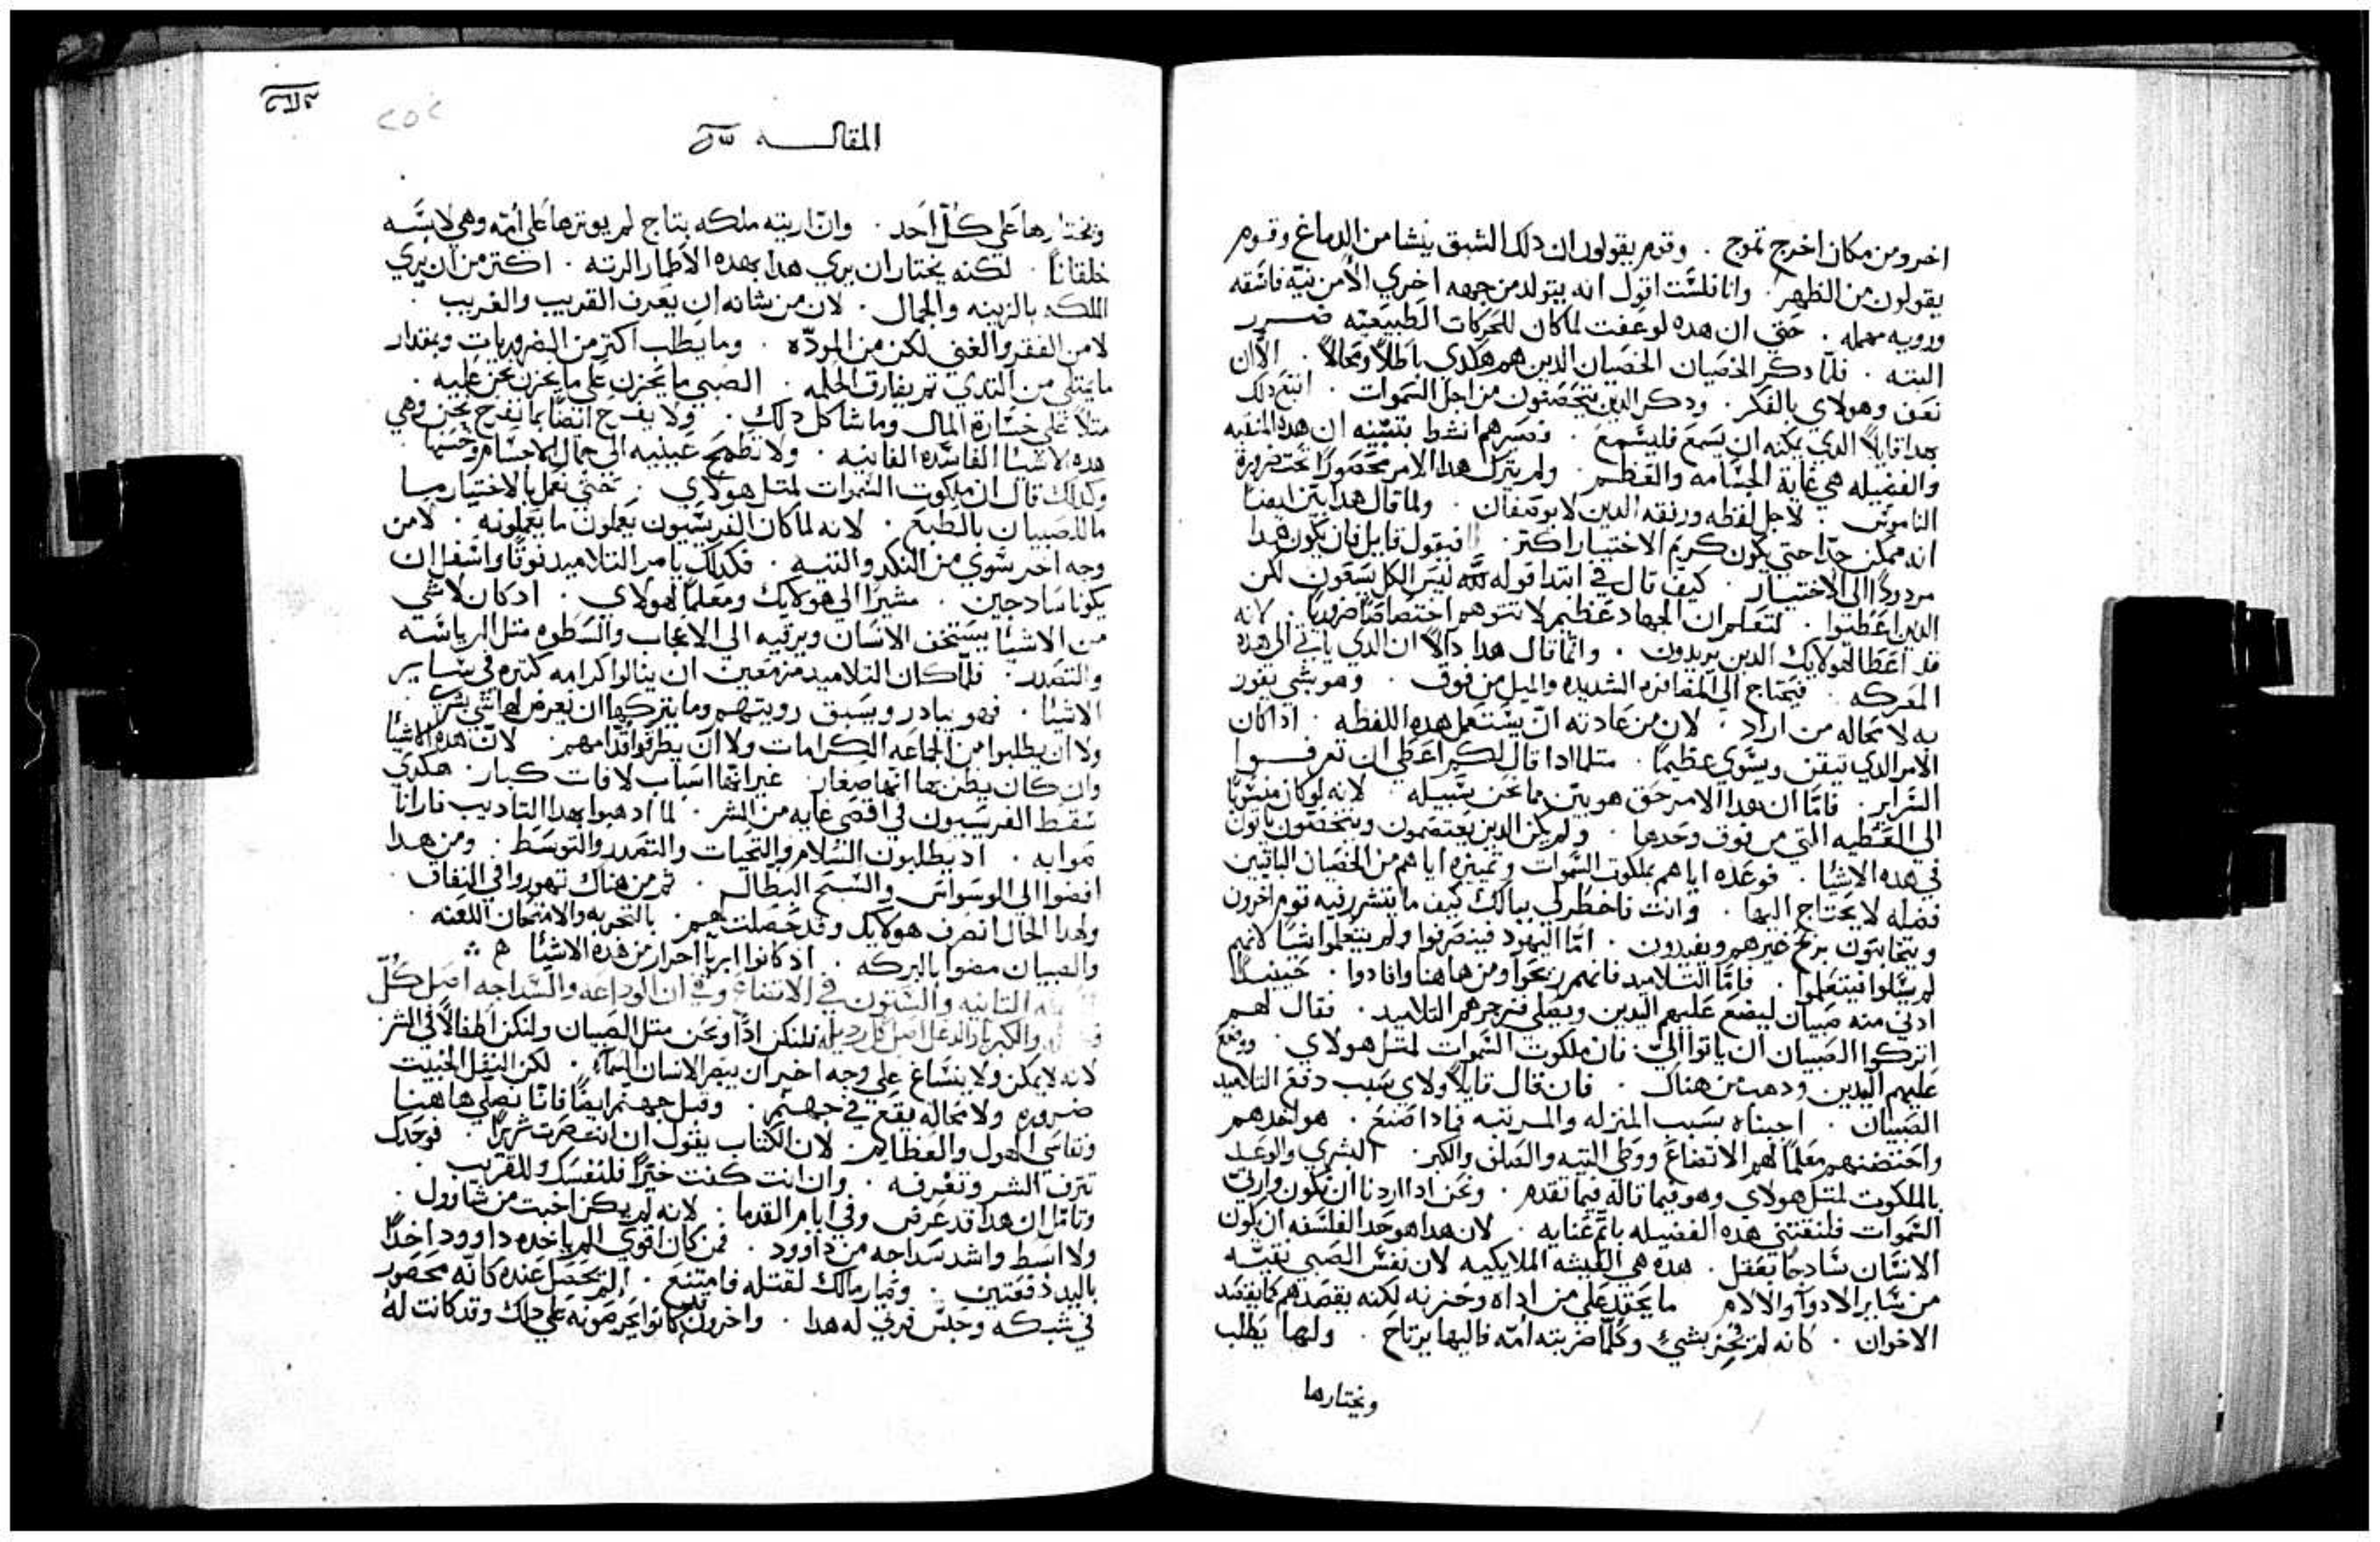 اخر ومن مكان اخرج تموج . وقوم يقولون ان دلك الشبق ينشا من الدماغ وقوم
يقولون من الظهر . وانا فلست اقول انه يتولد من جهه اخري الا من نيه فاسقه
ورويه مهمله . حتي ان هده لو عفت لما كان للحركات الطبيعيه ضرر
البته . فلما دكر الخصيان الخصيان الدين هم هكدي باطلاً ومحالاً . الا ان
نعف وهولاي بالفكر . ودكر الدين يتخصون من اجل السموات . اتبع دلك
بهدا قايلاً الدي يمكنه ان يسمع فليسمع . فصيرهم انشط بتبيينه ان هده المنقبه
والفضيله هي غاية الجسامه والعظم . ولم يترك هدا الامر محصوراً تحت ضرورة
الناموس . لاجل لفظه ورفقه الدين لا يوصفان . ولما قال هدا بين ايضا
انه ممكن جدا حتي يكون كريم الاختيار اكتر . فيقول قايل فان يكون هدا
مردوداً الي الاختيار . كيف قال في ابتدا قوله ليس الكل يسعون لكن
الدين اعطيوا . لتعلم ان الجهاد عظيم لا تتوهم اختصاصاً ضرورياً . لانه
قد اعطا لهولايك الدين يريدون . وانما قال هدا دالاً ان الدي ياتي الي هده
المعركه . فيحتاج الي المعاضده الشديده والميل من فوق . وهو بشي يفوز
به لا محاله من اراد . لان من عادته ان يستعمل هده اللفظه . ادا كان
الامر الدي تيقن ويسوي عظيما . متلما ادا قال لكم اعطي ان تعرفوا
السراير . فاما ان هدا الامر حق هو بين مما نحن بسبيله . لانه لو كان منسوبا
الي العطيه التي من فوق وحدها . ولم يكن الدين يعتصمون ويتخصون ياتون
في هده الاشيا . فوعده اياهم بملكوت السموات وتمييزه اياهم من الخصيان الباقيين
فضله لا يحتاج اليها . وانت فاخطر لي ببالك كيف ما يتشرر فيه قوم اخرون
ويتخابتون يربح غيرهم ويفيدون . اما اليهود فينصرفوا ولم يتعلموا شيا لانهم
لم يسلوا فيتعلموا . فاما التلاميد فانهم ربحوا ومن هاهنا وافادوا . حينيداً
ادني منه صبيان ليضع عليهم اليدين ويصلي فزجرهم التلاميد . فقال لهم
اتركوا الصبيان ان ياتوا الي فان ملكوت السموات لمتل هولاي . ووضع
عليهم اليدين ودهب من هناك . فان قال قايلاً ولاي سبب دفع التلاميد
الصبيان . اجبناه بسبب المنزله والمرتبه فمادا صنع . هو اخدهم
واحتضنهم معلماً لهم الاتضاع ووطي التيه والصلف والكبر البشري والوعد
بالملكوت لمتل هولاي وهو فيما قاله فيما تقدم . ونحن ادا اردنا ان نكون وارتي
السموات فلنقتني هده الفضيله باتم عنايه . لان هدا هو حد الفلسفه ان يكون
الانسان سادجاً بعقل . هده هي العيشه الملايكيه لان نفس الصبي نقيه
من ساير الادوا والالام ما يحقد علي من اداه وحزنه لكنه يقصدهم كما يقصد
الاخوان . كانه لم يحزن بشيءٍ وكلما ضربته امه فاليها يرتاح . ولها يطلب
ويختارها
المقاله
ويختارها علي كل احد . وان اريته ملكه بتاج لم يوترها علي امه وهي لابسه
خلقاناً . لكنه يختار ان يري هدا بهده الاطمار الرته . اكتر من ان يري
الملكه بالزينه والجمال . لان من شانه ان يعرف القريب والغريب
لا من الفقر والغني لكن من المودّه . وما يطلب اكتر من الضروريات وبمقدار
ما يمتلي من التدي تم يفارق الحلمه . الصبي ما يحزن علي ما نحزن نحن عليه .
متلاً علي خسارة المال وما شاكل دلك . ولا يفرح ايضا بما نفرح نحن وهي
هده الاشيا الفاسده الفانيه . ولا تطمح عينيه الي جمال الاجسام وحسنها
وكدلك قال ان ملكوت السموات لمتل هولاي . حتي نعمل بالاختيار
ما للصبيان بالطبع . لانه لما كان الفريسيون يعملون ما يعملونه . لا من
وجه اخر سوي من النكر والتيه . فكدلك يامر التلاميد فوقاً واسفل ان
يكونا سادجين . مشيرا الي هولايك ومعلماً لهولاي . اد كان لا شي
من الاشيا يستخف الانسان ويرقيه الي الاعجاب والسطوه متل الرياسه
والتصدر . فلما كان التلاميد مزمعين ان ينالوا كرامه كتيره في ساير
الاشيا . فهو يبادر ويسبق رويتهم وما يتركها ان يعرض لها شي بشري
ولا ان يطلبوا من الجماعه الكرامات ولا ان يطرقوا قدامهم . لان هده الاشيا
وان كان يظن بها انها صغار غير انها اسباب لافات كبار . هكدي
سقط الفريسيون في اقصي غايه من الشر . لما ادهبوا بهدا التاديب
. اد يطلبون السلام والتحيات والتصدر والتوسط . ومن هدا
افضوا الي الوسواس والسبح البطال . تم من هناك تهوروا في النفاق .
ولهدا الحال انصرف هولايك وقد حصلت لهم . بالتجربه والامتحان اللعنه .
والصبيان مضوا بالبركه . اد كانوا ابريا احرار من هده الاشيا
التانيه والستون في الاتضاع وفي ان الوداعه والسداجه اصل كل
والكبريا والدغل اصل كل رديله فلنكن اداً ونحن متل الصبيان ولنكن اطفالاً في الشر
لانه لا يمكن ولا ينساغ علي وجه اخر ان يبصر الانسان السماء . لكن النغل الخبيت
ضروره ولا محاله يقع في جهنم . وقبل جهنم ايضاً فانا نصلي هاهنا
ونقاسي الهول والعظايم . لان الكتاب يقول ان انت صرت شريراً . فوحدك
تنزف الشر وتغرفه . وان انت كنت خيراً فلنفسك وللقريب .
وتامل ان هدا قد عرض وفي ايام القدما . لانه لم يكن اخبت من شاوول .
ولا ابسط واشد سداجه من داوود . فمن كان اقوي الم ياخده داوود اخداً
باليد دفعتين . وصار مالك لقتله فامتنع . الم يحصل عنده كانه محصور
في شبكه وحبس فرتي له هدا . واخرون قد كانوا يحرصونه علي داك وقد كانت له